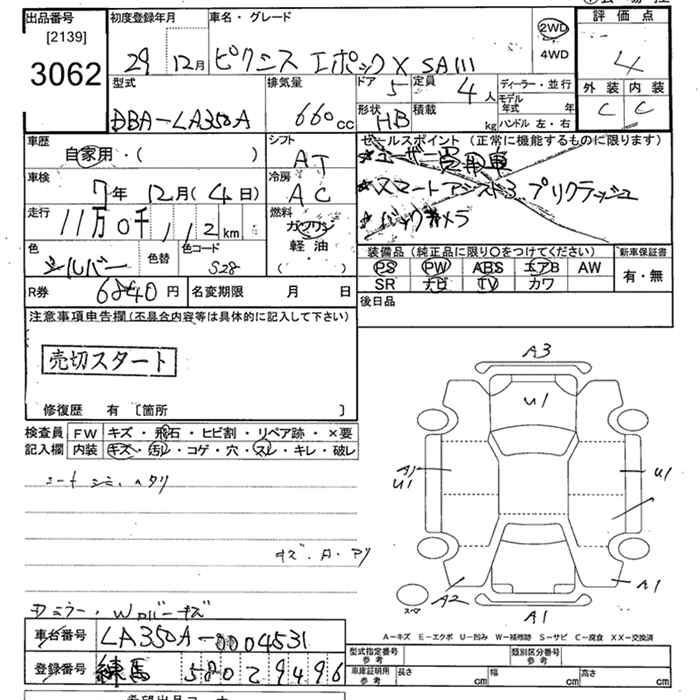 出品番号 [2139] 3062
初度登録年月 29年 12月
車名・グレード ピクシス エポック X SAIII
2WD 4WD
評価点 4
外装 C 内装 C
型式 DBA-LA350A
排気量 660cc
ドア 5 定員 4人
形状 HB 積載 kg
ディーラー・並行
モデル年式 年
ハンドル 左・右
車歴 自家用・( )
シフト AT
セールスポイント (正常に機能するものに限ります)
★ユーザー買取車
★スマートアシスト3 プリクラッシュ
★バックカメラ
車検 7年 12月(4日)
冷房 AC
走行 11万0千112km
燃料 ガソリン 軽油・( )
色 シルバー 色替 色コード S28
装備品 (純正品に限り○をつけてください)
PS PW ABS エアB AW
SR ナビ TV カワ
新車保証書 有・無
R券 6840円 名変期限 月 日
後日品
注意事項申告欄(不具合内容等は具体的に記入して下さい)
売切スタート
修復歴 有 [箇所 ]
検査員記入欄
FW キズ・飛石・ヒビ割・リペア跡・×要
内装 キズ・汚レ・コゲ・穴・スレ・キレ・破レ
シートシミ、ヘタリ
キズ・A・アリ
A3
U1
A1
U1
U1
A2
A1
A1
スペア
A-キズ E-エクボ U-凹み W-補修跡 S-サビ C-腐食 XX-交換済
車台番号 LA350A-0004531
登録番号 練馬 580 2 9496
型式指定番号 参考
類別区分番号 参考
車庫証明用 参考 長さ cm 幅 cm 高さ cm